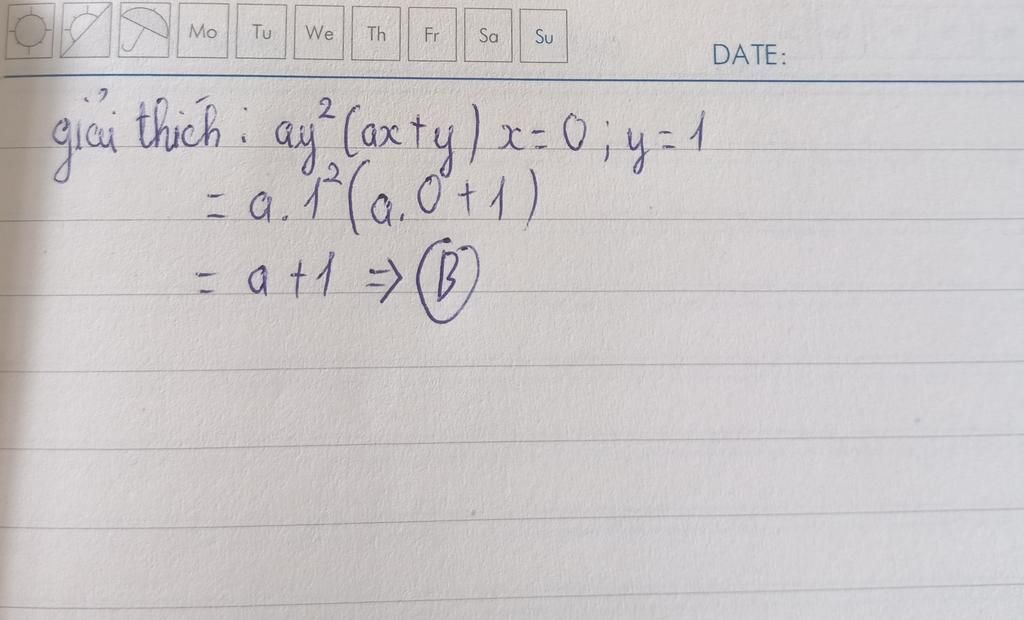 Mo Tu We Th Fr Sa Su
DATE:
giải thích : ay²(ax+y) x=0 ; y=1
= a.1²(a.0+1)
= a+1 => B